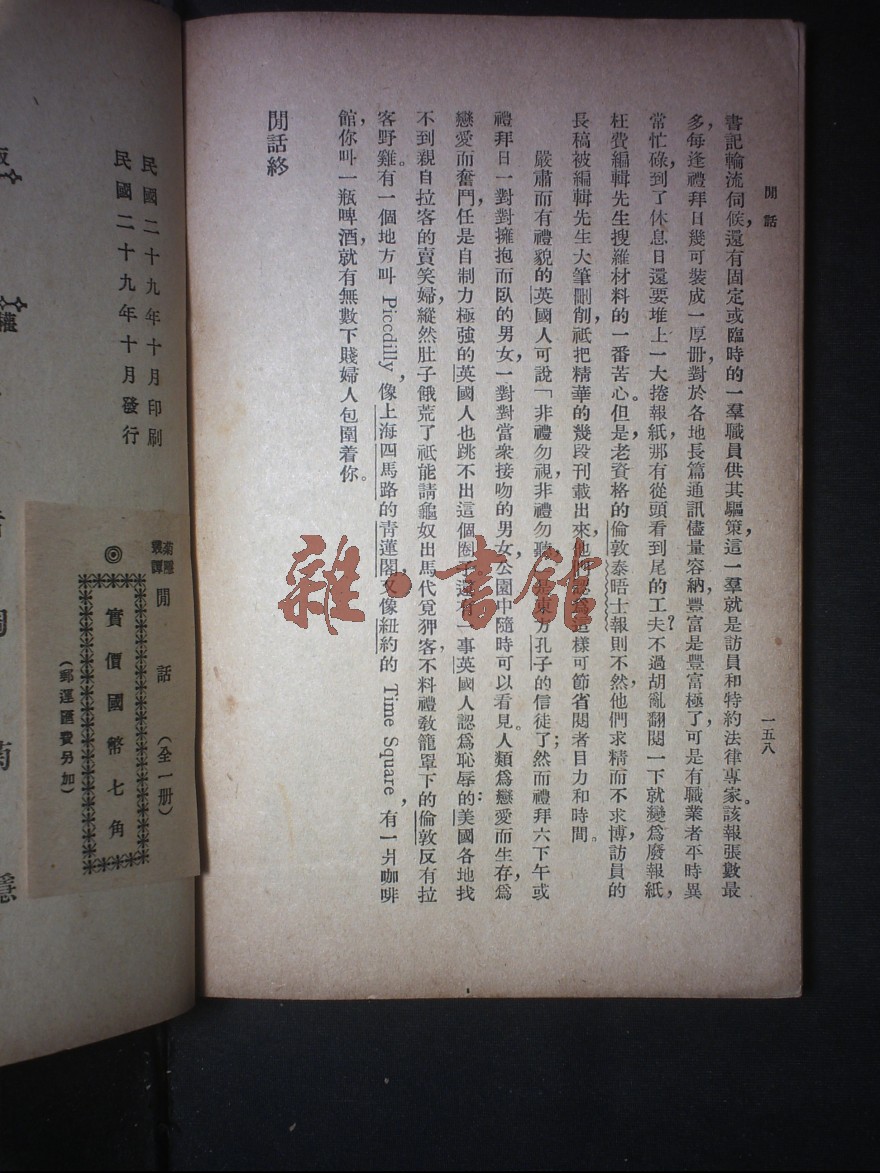 閒話
一五八
書記輪流伺候,還有固定或臨時的一羣職員供其驅策,這一羣就是訪員和特約法律專家。該報張數最
多,每逢禮拜日幾可裝成一厚册,對於各地長篇通訊儘量容納,豐富是豐富極了,可是有職業者平時異
常忙碌,到了休息日還要堆上一大捲報紙,那有從頭看到尾的工夫?不過胡亂翻閱一下就變爲廢報紙,
枉費編輯先生搜羅材料的一番苦心。但是,老資格的倫敦泰晤士報則不然,他們求精而不求博,訪員的
長稿被編輯先生大筆刪削,祇把精華的幾段刊載出來,他們認爲這樣可節省閱者目力和時間。
嚴肅而有禮貌的英國人可說「非禮勿視,非禮勿聽,是東方孔子的信徒了;然而禮拜六下午或
禮拜日一對對擁抱而臥的男女,一對對當衆接吻的男女,公園中隨時可以看見。人類爲戀愛而生存,爲
戀愛而奮鬥,任是自制力極強的英國人也跳不出這個圈子。還有一事英國人認爲恥辱的:美國各地找
不到親自拉客的賣笑婦,縱然肚子餓荒了祇能請龜奴出馬代覓狎客,不料禮敎籠罩下的倫敦反有拉
客野雞。有一個地方叫 Piccdilly,像上海四馬路的靑蓮閣,又像紐約的 Time Square,有一爿咖啡
館,你叫一瓶啤酒,就有無數下賤婦人包圍着你。
閒話終
民國二十九年十月印刷
民國二十九年十月發行
菊隱
叢譚
閒話
(全一册)
◎實價國幣七角
(郵運匯費另加)
雜·書館